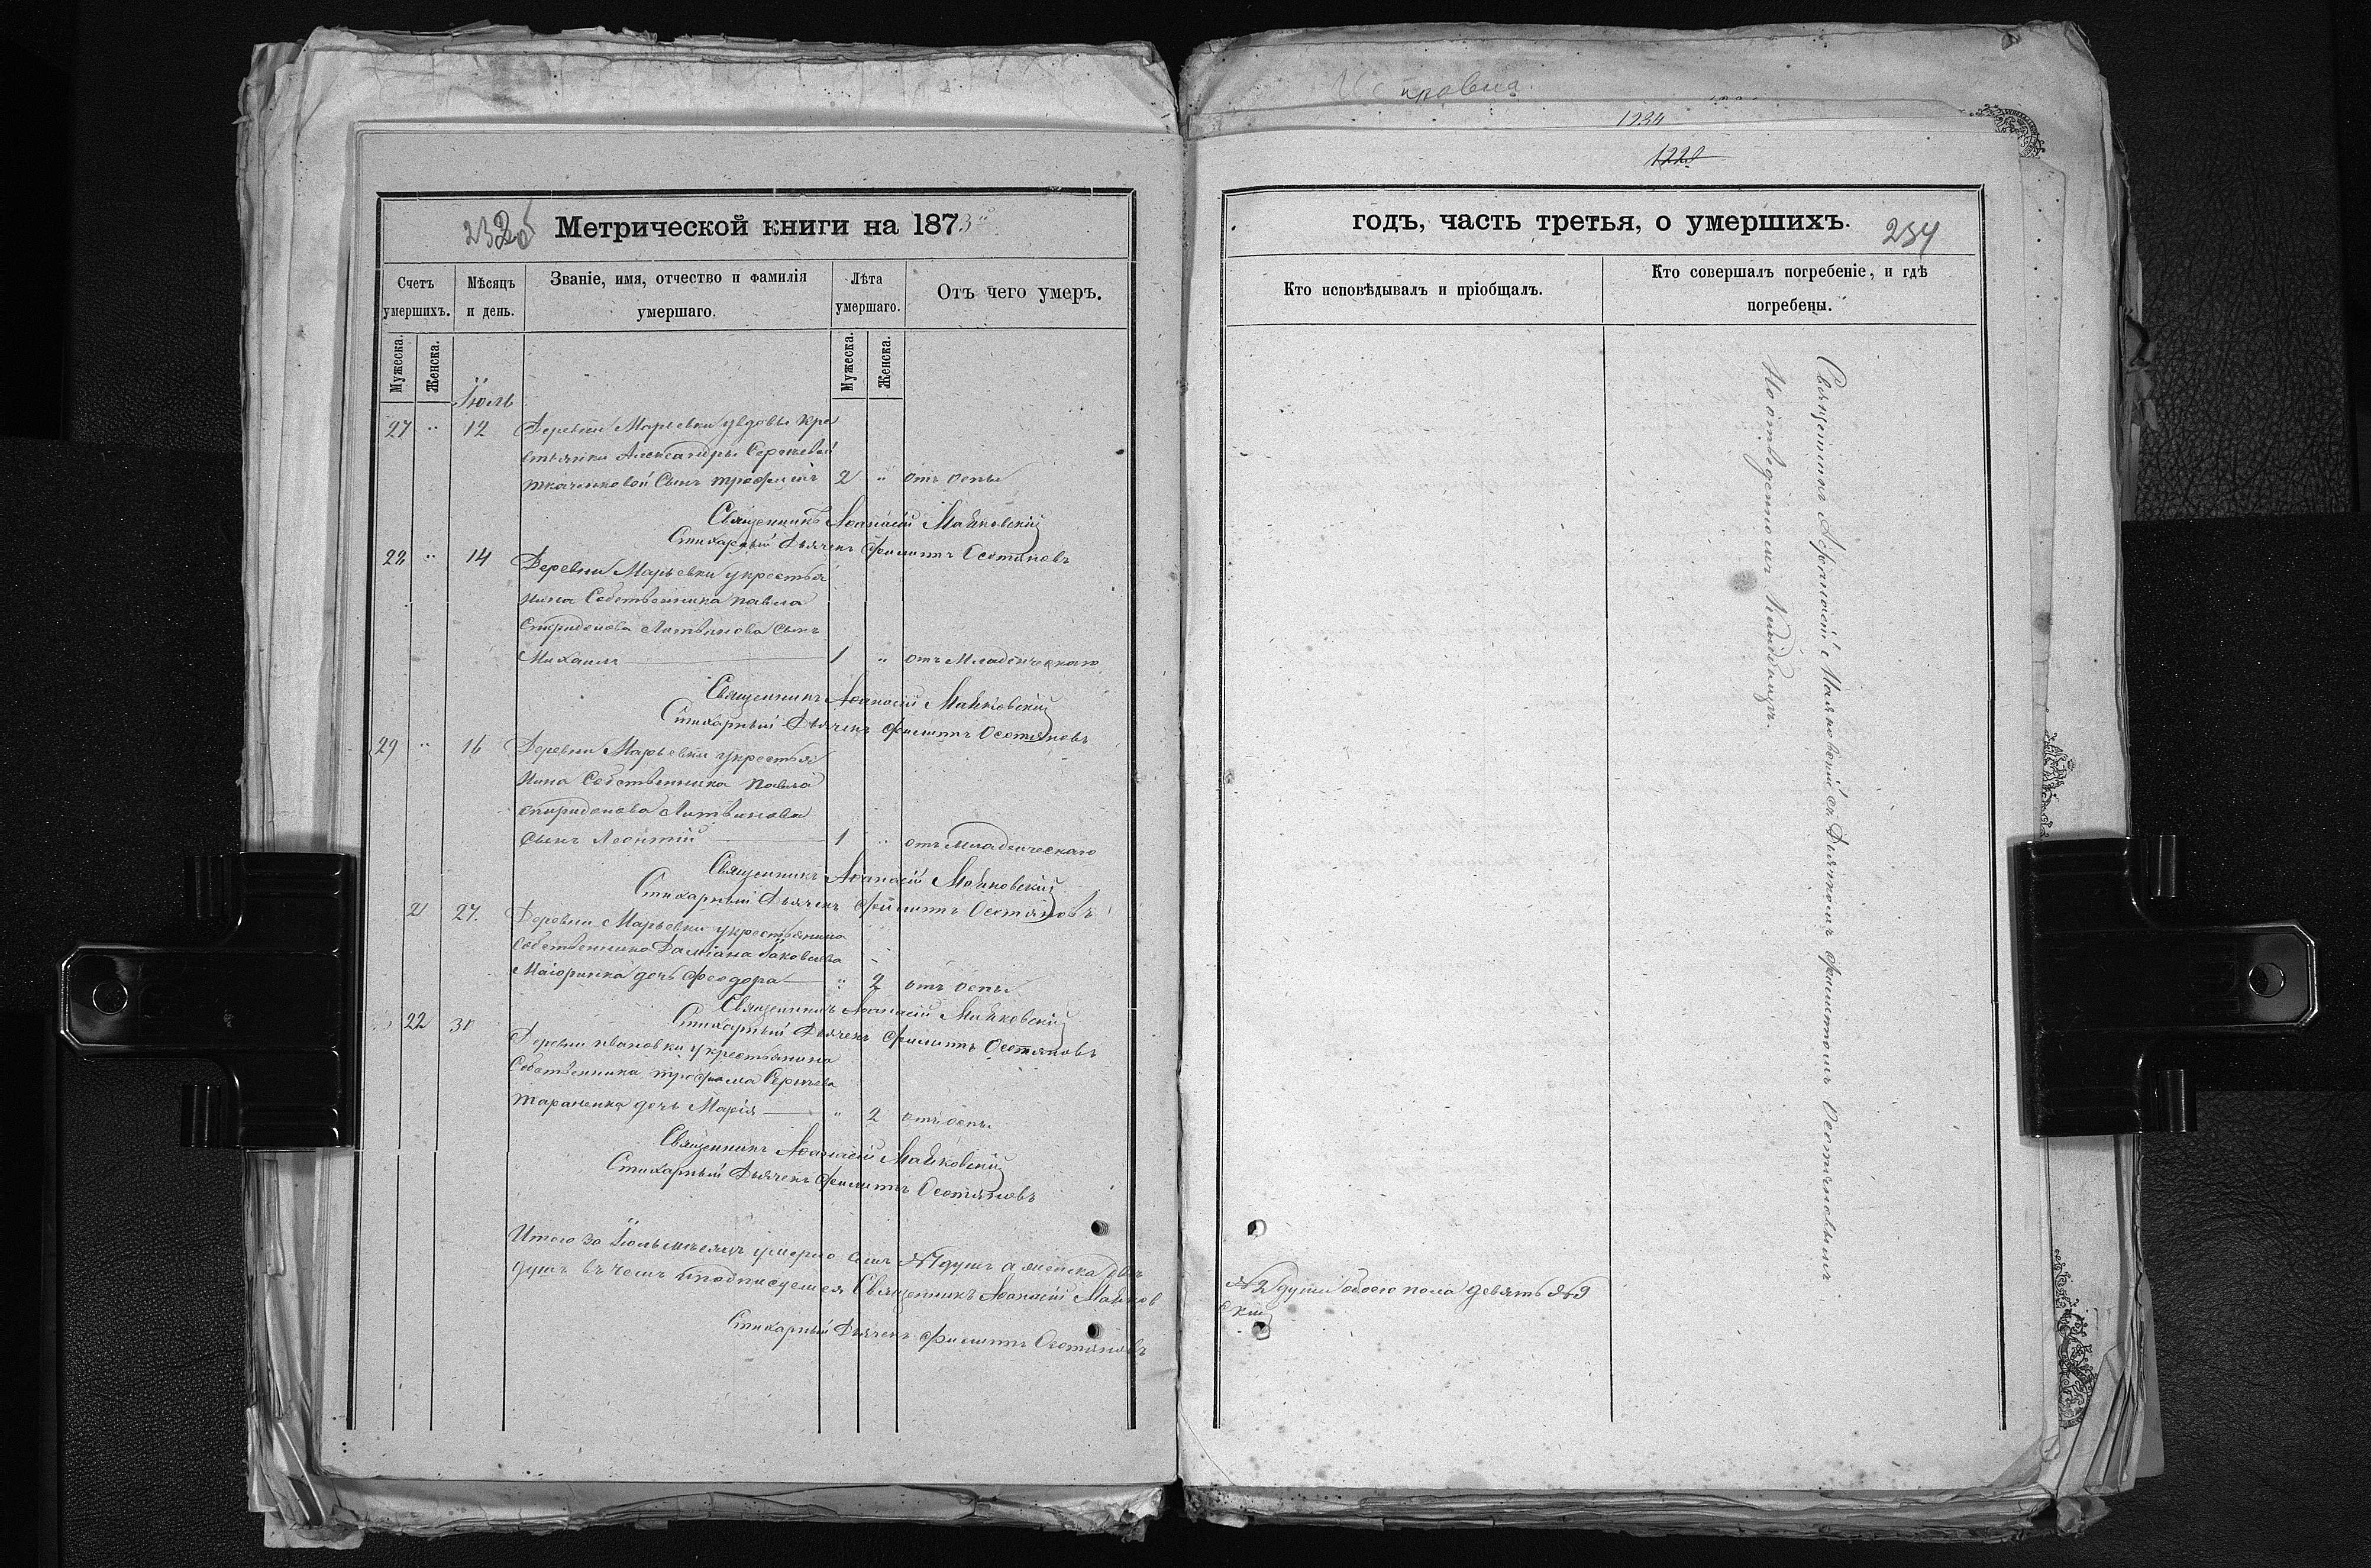 Исправна
1234
1228
Метрической книги на 1873й
Счетъ умершихъ.
Мѣсяцъ и день.
Званіе, имя, отчество и фамилія умершаго.
Лѣта умершаго.
Отъ чего умеръ.
Мужеска.
Женска.
Мужеска.
Женска.
Іюль
27 " 12 Деревни Марьевки у вдовы кре
стьянки Александры Сергѣевой
Ткаченковой Сынъ Трофимъ 2 " отъ оспы
Священникъ Афанасій Маяковскій
Стихарный Дьячекъ Филиппъ Осотяновъ
28 " 14 Деревни Марьевки у крестья
нина Собственника Павла
Спиридонова Литвинова Сынъ
Михаилъ 1 " отъ Младенческаго
Священникъ Афанасій Маяковскій
Стихарный Дьячекъ Филиппъ Осотяновъ
29 " 16 Деревни Марьевки у крестья
нина Собственника Павла
Спиридонова Литвинова
Сынъ Леонтій 1 " отъ Младенческаго
Священникъ Афанасій Маяковскій
Стихарный Дьячекъ Филиппъ Осотяновъ
21 27. Деревни Марьевки у крестьянина
Собственника Даміана Яковлева
Маіоринка дочь Феодора " 2 отъ оспы
Священникъ Афанасій Маяковскій
Стихарный Дьячекъ Филиппъ Осотяновъ
" 22 31 Деревни Ивановки у крестьянина
Собственника Трофима Сергѣева
Тараненка дочь Марія " 2 отъ оспы
Священникъ Афанасій Маяковскій
Стихарный Дьячекъ Филиппъ Осотяновъ
Итого за Іюль мѣсяцъ умерло семь №7 душъ а женска двѣ
душъ въ чемъ подписуемся Священникъ Афанасій Маяков
Стихарный Дьячекъ Филиппъ Осотяновъ
годъ, часть третья, о умершихъ.
234
Кто исповѣдывалъ и пріобщалъ.
Кто совершалъ погребеніе, и гдѣ погребены.
Священникъ Афанасій Маяковскій съ Дьячкомъ Филиппомъ Осотяновымъ
На отведенномъ Кладбищѣ.
№2 души обоего пола девять №9
скій